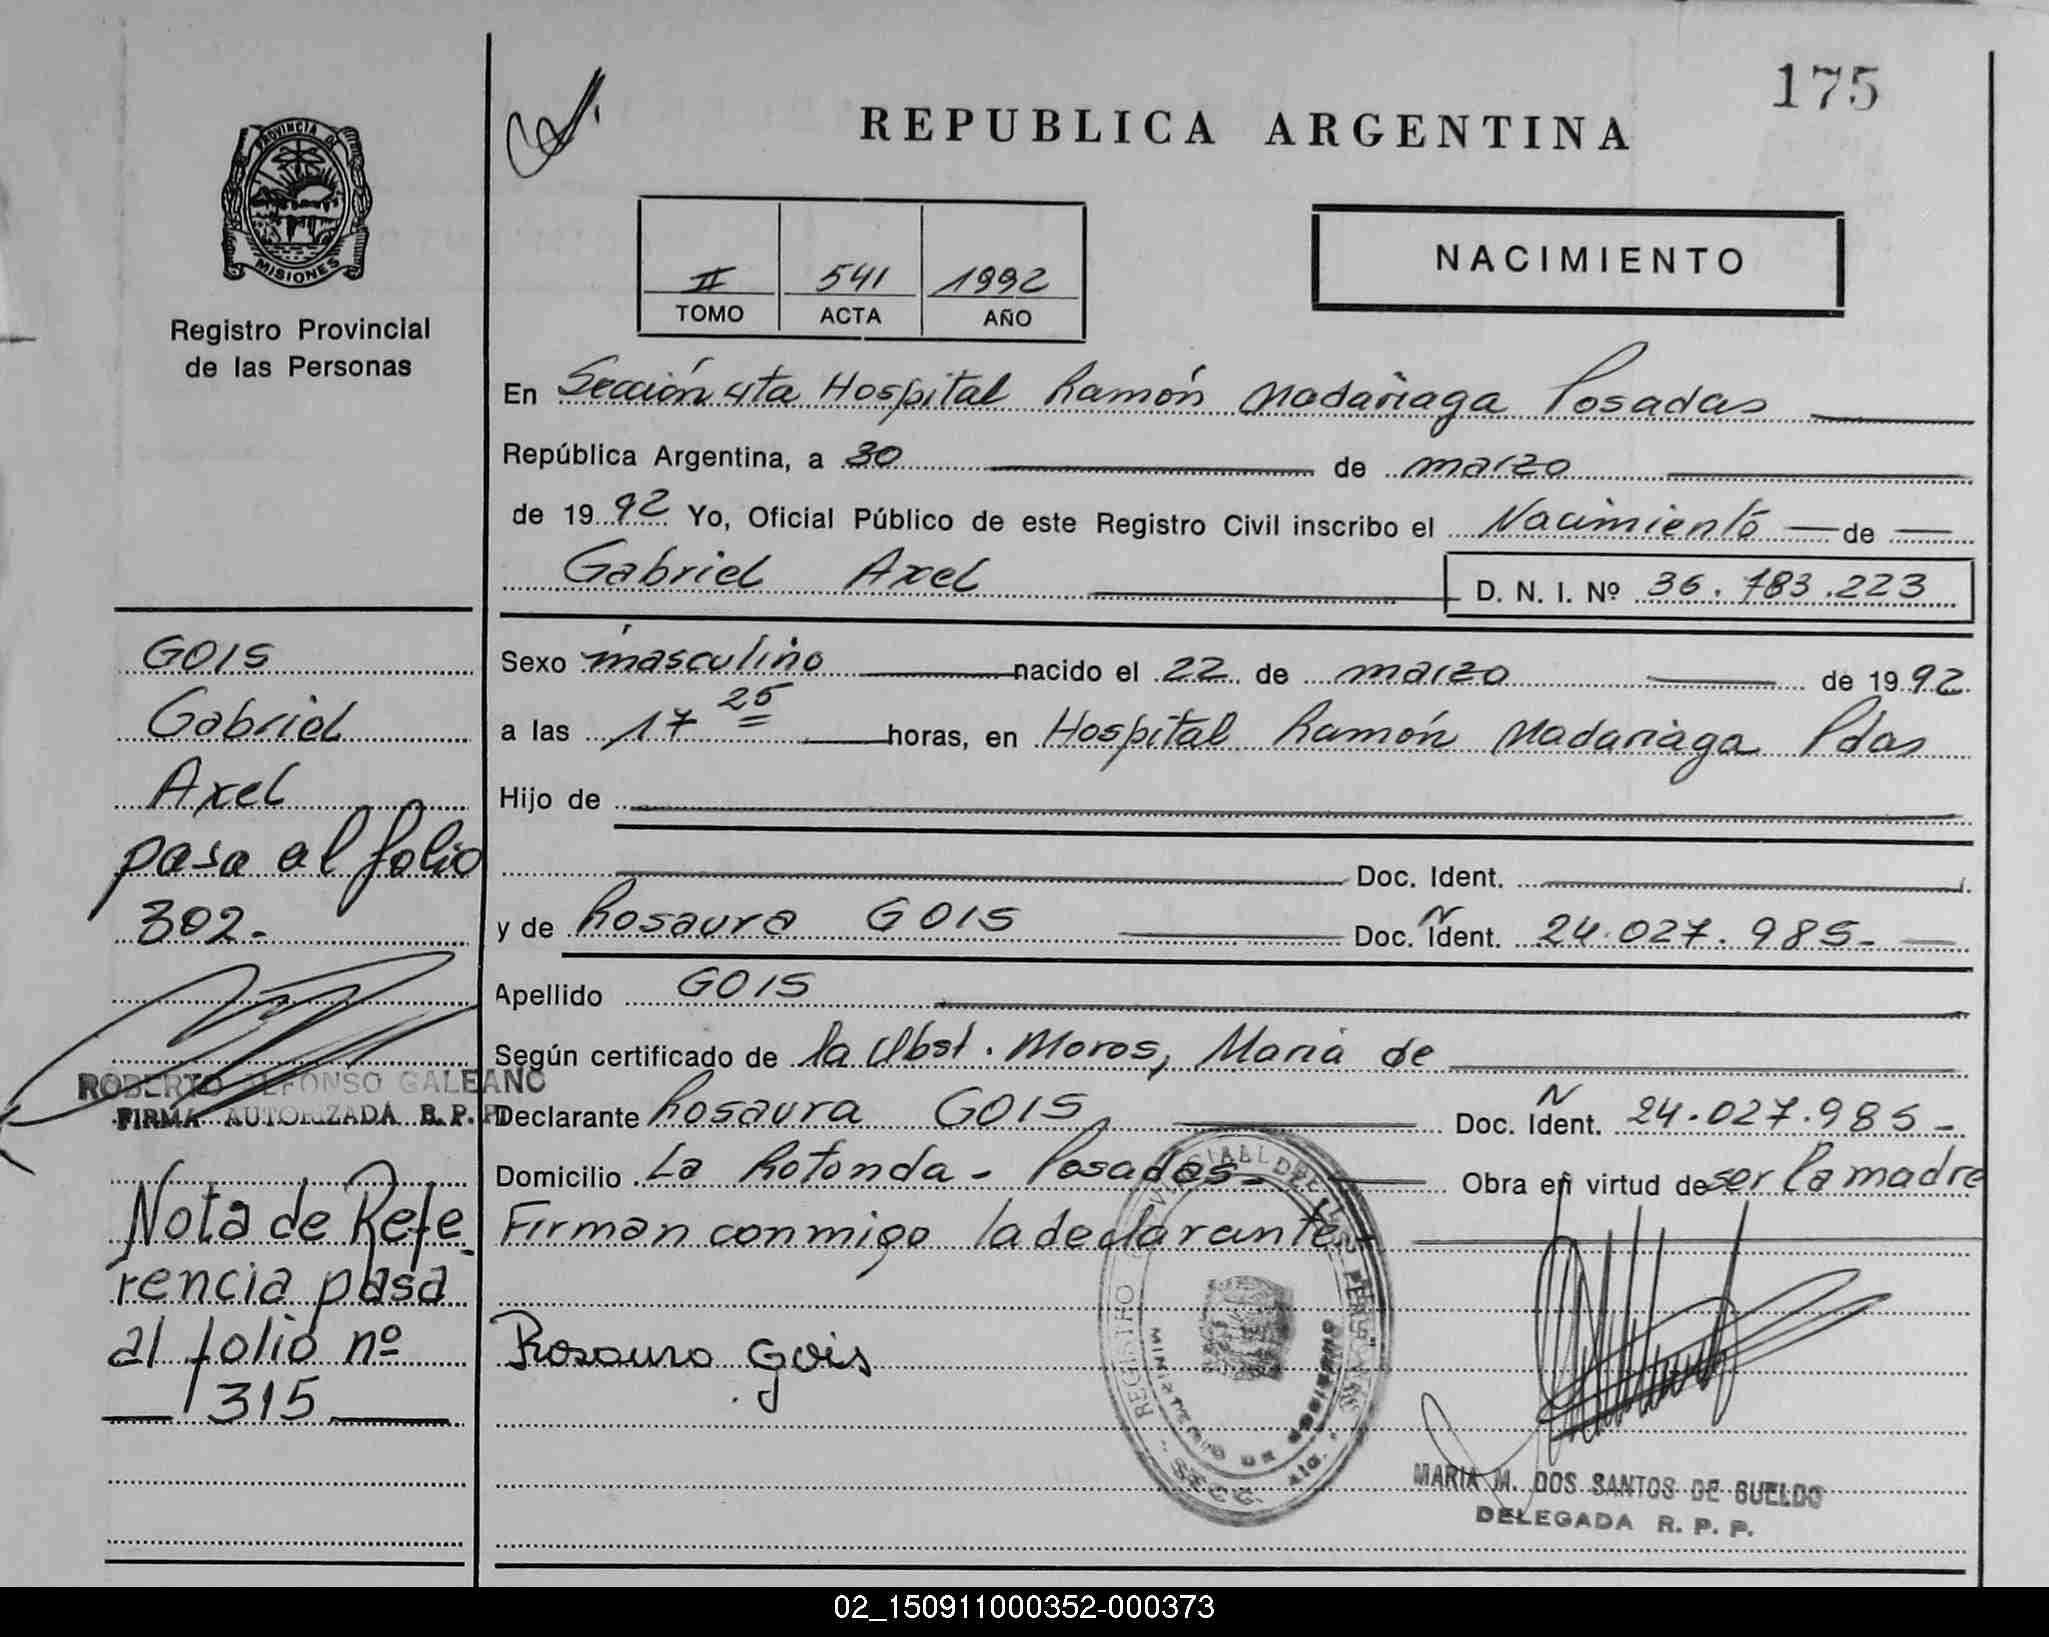 175
REPUBLICA ARGENTINA
PROVINCIA DE
MISIONES
Registro Provincial
de las Personas
II 541 1992
TOMO ACTA AÑO
NACIMIENTO
En Sección 4ta Hospital Ramón Madariaga Posadas
República Argentina, a 30 de marzo
de 1992 Yo, Oficial Público de este Registro Civil inscribo el Nacimiento de
Gabriel Axel D. N. I. Nº 36.783.223
Sexo masculino nacido el 22 de marzo de 1992
a las 17 25 horas, en Hospital Ramón Madariaga Pdas
Hijo de
Doc. Ident.
y de Rosaura GOIS Doc. Ident. N 24.027.985-
Apellido GOIS
Según certificado de la Obst. Moros, Maria de
Declarante Rosaura GOIS Doc. Ident. N 24.027.985-
Domicilio La Rotonda - Posadas- Obra en virtud de ser la madre
Firman conmigo la declarante
Rosaura Gois
MARIA M. DOS SANTOS DE SUELDO
DELEGADA R. P. P.
GOIS
Gabriel
Axel
pasa al folio
302-
ROBERTO ALFONSO GALEANO
FIRMA AUTORIZADA R. P. P.
Nota de Refe-
rencia pasa
al folio nº
315
02_150911000352-000373